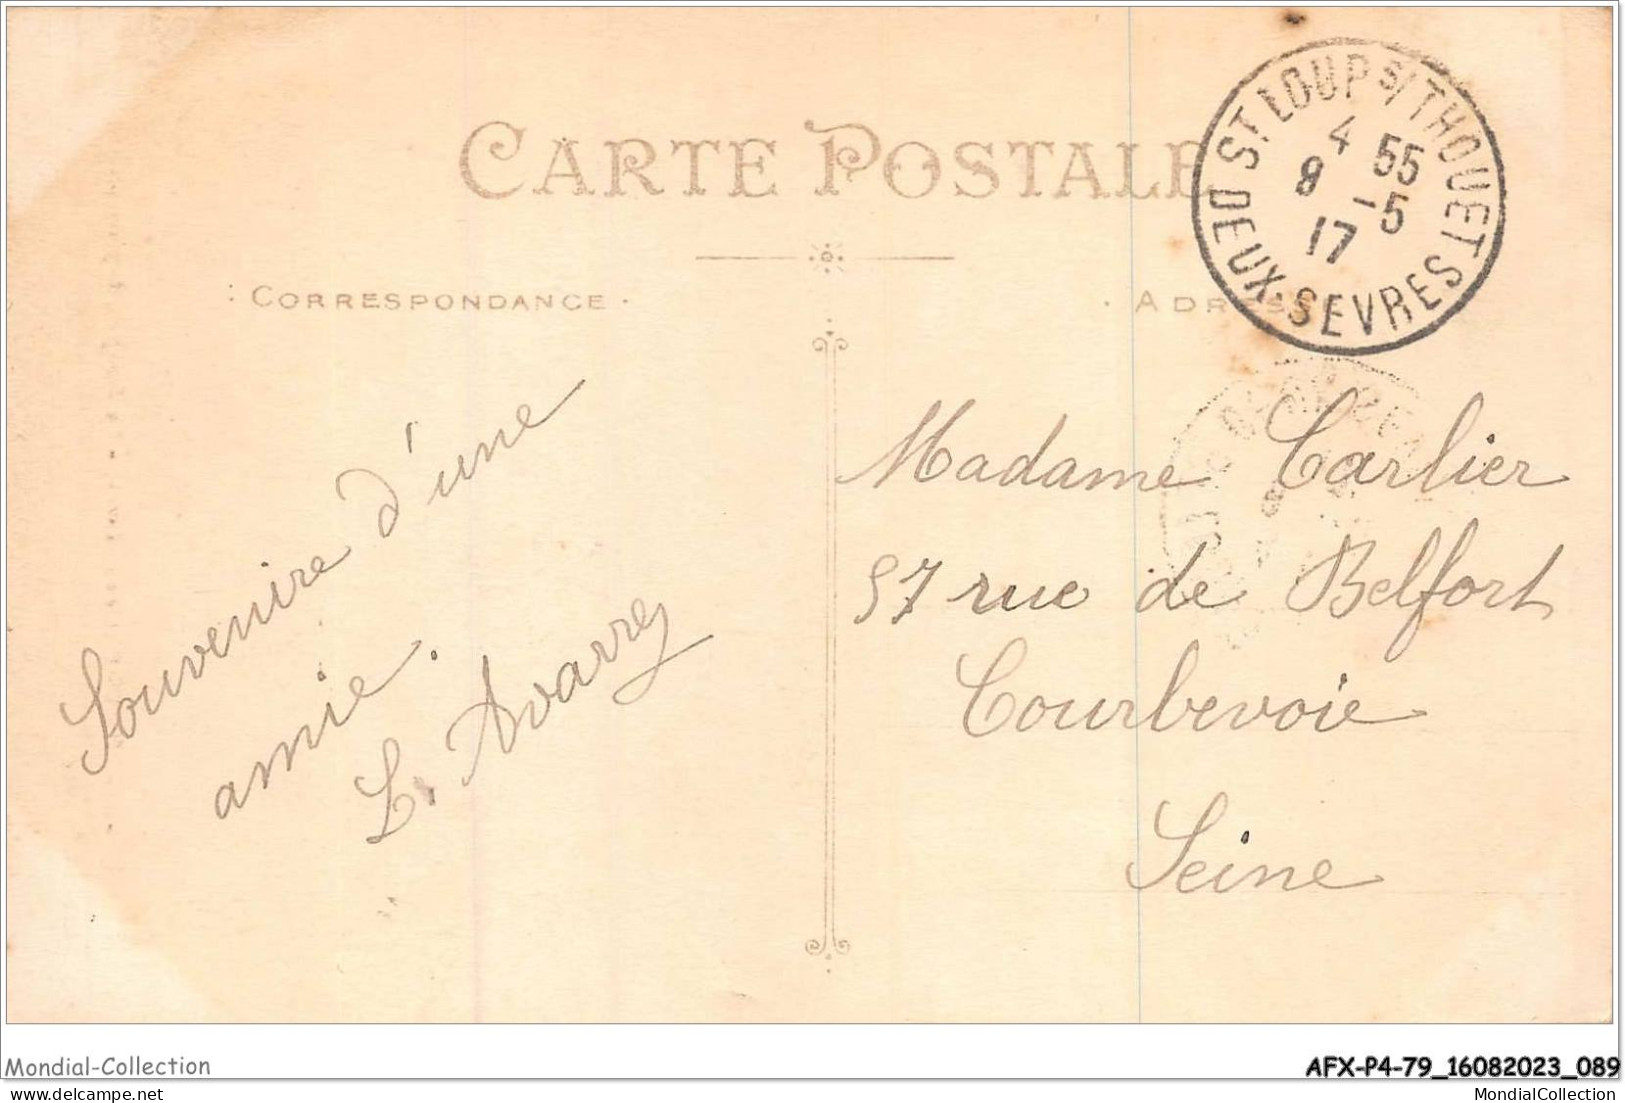 CARTE POSTALE
CORRESPONDANCE
ADRESSE
ST LOUP S/THOUET
4 55
8 -5
17
DEUX-SEVRES
Souvenire d'une
amie.
L. Avarrez
Madame Carlier
57 rue de Belfort
Courbevoie
Seine
Mondial-Collection
AFX-P4-79_16082023_089
MondialCollection
MondialCollection